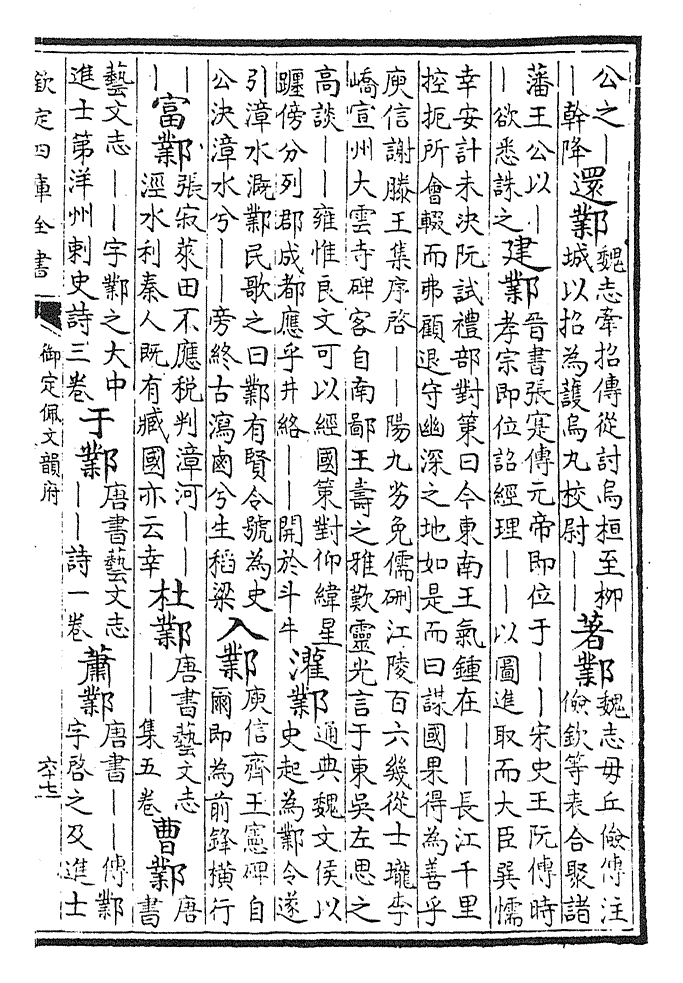 公之｜
｜幹降
還鄴
魏志牽招傳從討烏桓至柳
城以招為護烏九校尉｜｜
著鄴
魏志毋丘儉傳注
儉欽等表合聚諸
藩王公以｜
｜欲悉誅之
建鄴
晉書張寔傳元帝即位于｜｜宋史王阮傳時
孝宗即位詔經理｜｜以圖進取而大臣巽懦
幸安計未決阮試禮部對策曰今東南王氣鍾在｜｜長江千里
控扼所會輟而弗顧退守幽深之地如是而曰謀國果得為善乎
庾信謝滕王集序啓｜｜陽九劣免儒硎江陵百六幾從士壠李
嶠宣州大雲寺碑客自南鄙王壽之雅歎靈光言于東吳左思之
高談｜｜雍惟良文可以經國策對仰緯星
躔傍分列郡成都應乎井絡｜｜開於斗牛
灌鄴
通典魏文侯以
史起為鄴令遂
引漳水溉鄴民歌之曰鄴有賢令號為史
公決漳水兮｜｜旁終古瀉鹵兮生稻梁
入鄴
庾信齊王憲碑自
爾即為前鋒橫行
｜
｜
富鄴
張寂萊田不應稅判漳河｜｜
涇水利秦人既有臧國亦云幸
杜鄴
唐書藝文志
｜｜集五卷
曹鄴
唐
書
藝文志｜｜字鄴之大中
進士第洋州刺史詩三卷
于鄴
唐書藝文志
｜｜詩一卷
蕭鄴
唐書｜｜傳鄴
字啓之及進士
欽定四庫全書
御定佩文韻府